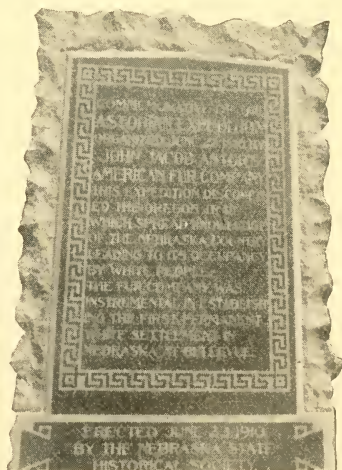 COMMEMORATIVE OF THE
ASTORIAN EXPEDITION
ORGANIZED JUNE 23, 1810 BY
JOHN JACOB ASTOR'S
AMERICAN FUR COMPANY
THIS EXPEDITION DISCOVER-
ED THE OREGON TRAIL
WHICH SPREAD KNOWLEDGE
OF THE NEBRASKA COUNTRY
LEADING TO ITS OCCUPANCY
BY WHITE PEOPLE
THE FUR COMPANY WAS
INSTRUMENTAL IN ESTABLISH-
ING THE FIRST PERMANENT
WHITE SETTLEMENT IN
NEBRASKA AT BELLEVUE
ERECTED JUNE 23 1910
BY THE NEBRASKA STATE
HISTORICAL SOCIETY